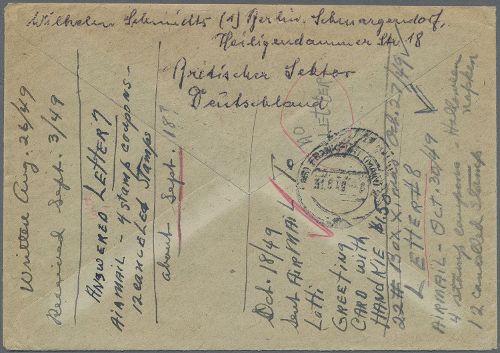 Wilhelm Schmidts (1) Berlin. Schmargendorf,
Heiligendammer Str 18
Britischer Sektor
Deutschland
Written Aug. 26/49
Received Sept. 3/49
ANSWERED LETTER 7
AIRMAIL - 4 stamp coupons -
12 canceled Stamps
about Sept. 18?
NO
LETTER
FRANKFURT (MAIN)
31.8.49
Oct. 18/49
sent AIRMAIL To
Lotti
GREETING
CARD WITH
HANDKIE $1.50
22# Box Xmas Oct. 27/49
LETTER #8
AIRMAIL - Oct. 30/49
4 stamp coupons - Halloween
napkin
12 cancelled Stamps